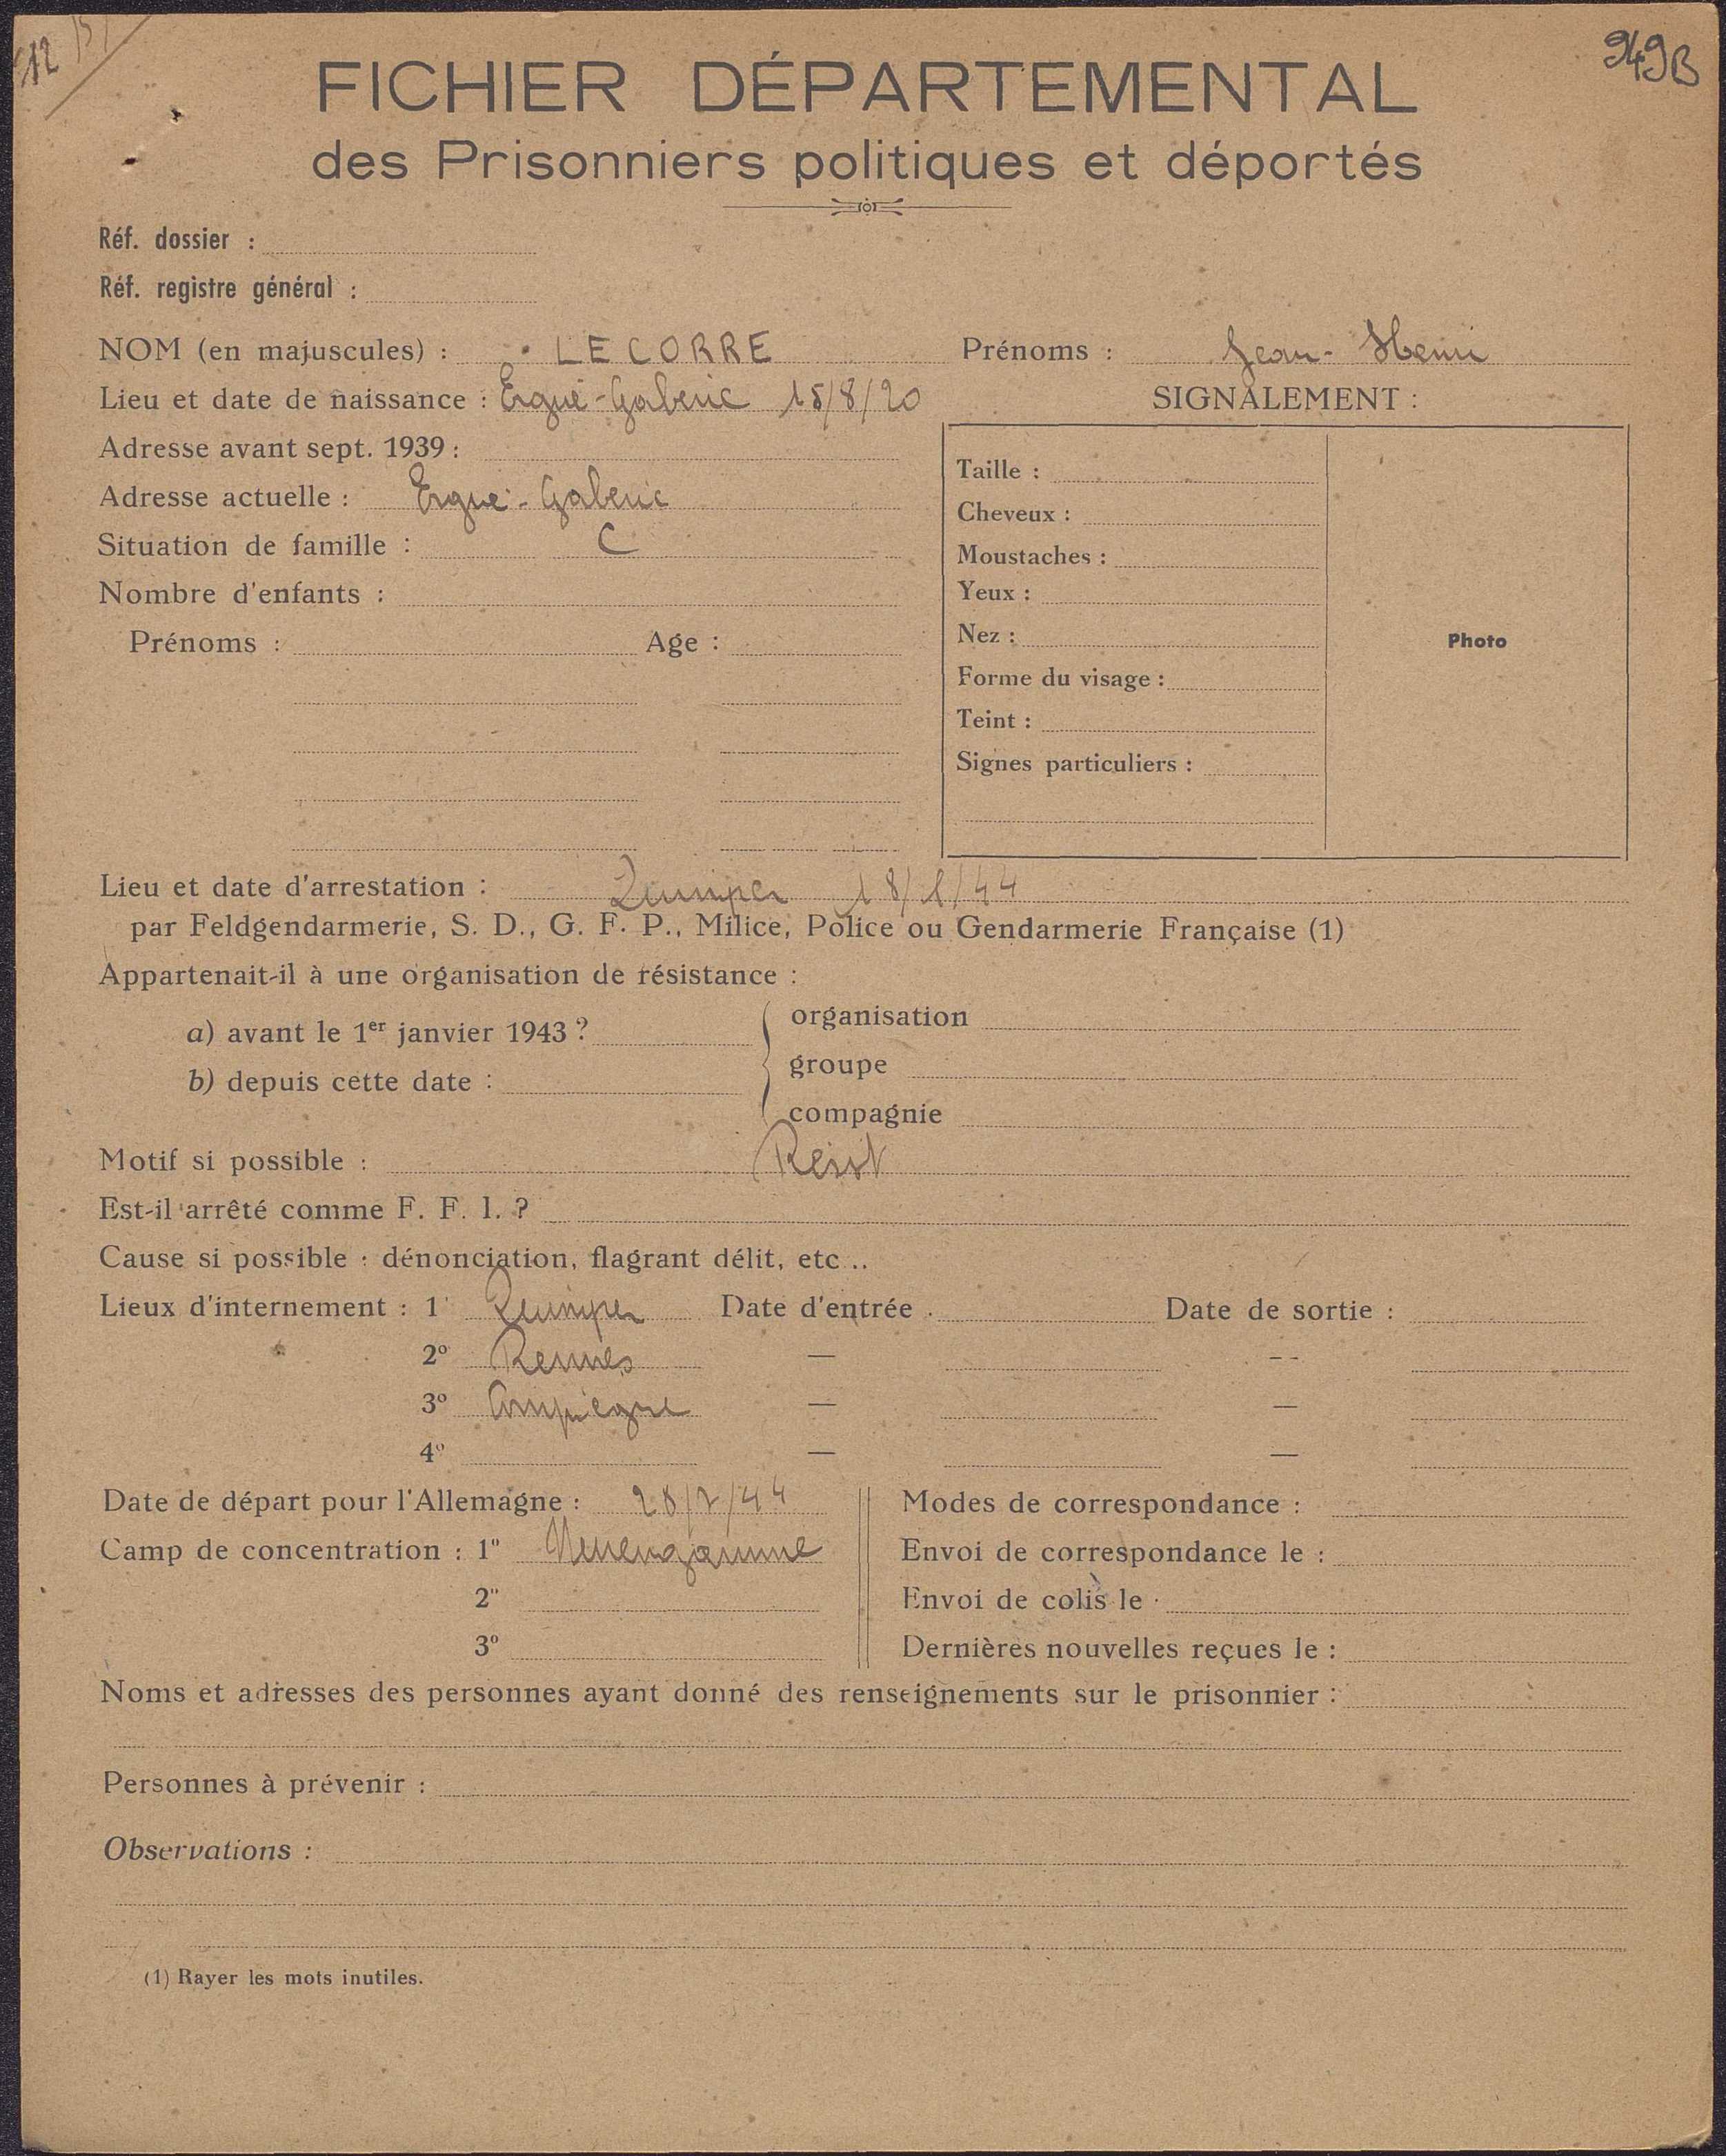 12
949B
FICHIER DÉPARTEMENTAL
des Prisonniers politiques et déportés
Réf. dossier :
Réf. registre général :
NOM (en majuscules) : LE CORRE Prénoms : Jean-Henri
Lieu et date de naissance : Ergué-Gabéric 15/8/20
SIGNALEMENT :
Adresse avant sept. 1939 :
Adresse actuelle : Ergué-Gabéric
Situation de famille : C
Nombre d'enfants :
Prénoms : Age :
Taille :
Cheveux :
Moustaches :
Yeux :
Nez :
Forme du visage :
Teint :
Signes particuliers :
Photo
Lieu et date d'arrestation : Quimper 18/1/44
par Feldgendarmerie, S. D., G. F. P., Milice, Police ou Gendarmerie Française (1)
Appartenait-il à une organisation de résistance :
a) avant le 1er janvier 1943 ?
b) depuis cette date :
organisation
groupe
compagnie
Motif si possible : Résist
Est-il arrêté comme F. F. I. ?
Cause si possible : dénonciation, flagrant délit, etc ..
Lieux d'internement : 1° Quimper Date d'entrée : Date de sortie :
2° Rennes — —
3° Compiègne — —
4° — —
Date de départ pour l'Allemagne : 28/7/44
Camp de concentration : 1° Neuengamme
2°
3°
Modes de correspondance :
Envoi de correspondance le :
Envoi de colis le :
Dernières nouvelles reçues le :
Noms et adresses des personnes ayant donné des renseignements sur le prisonnier :
Personnes à prévenir :
Observations :
(1) Rayer les mots inutiles.